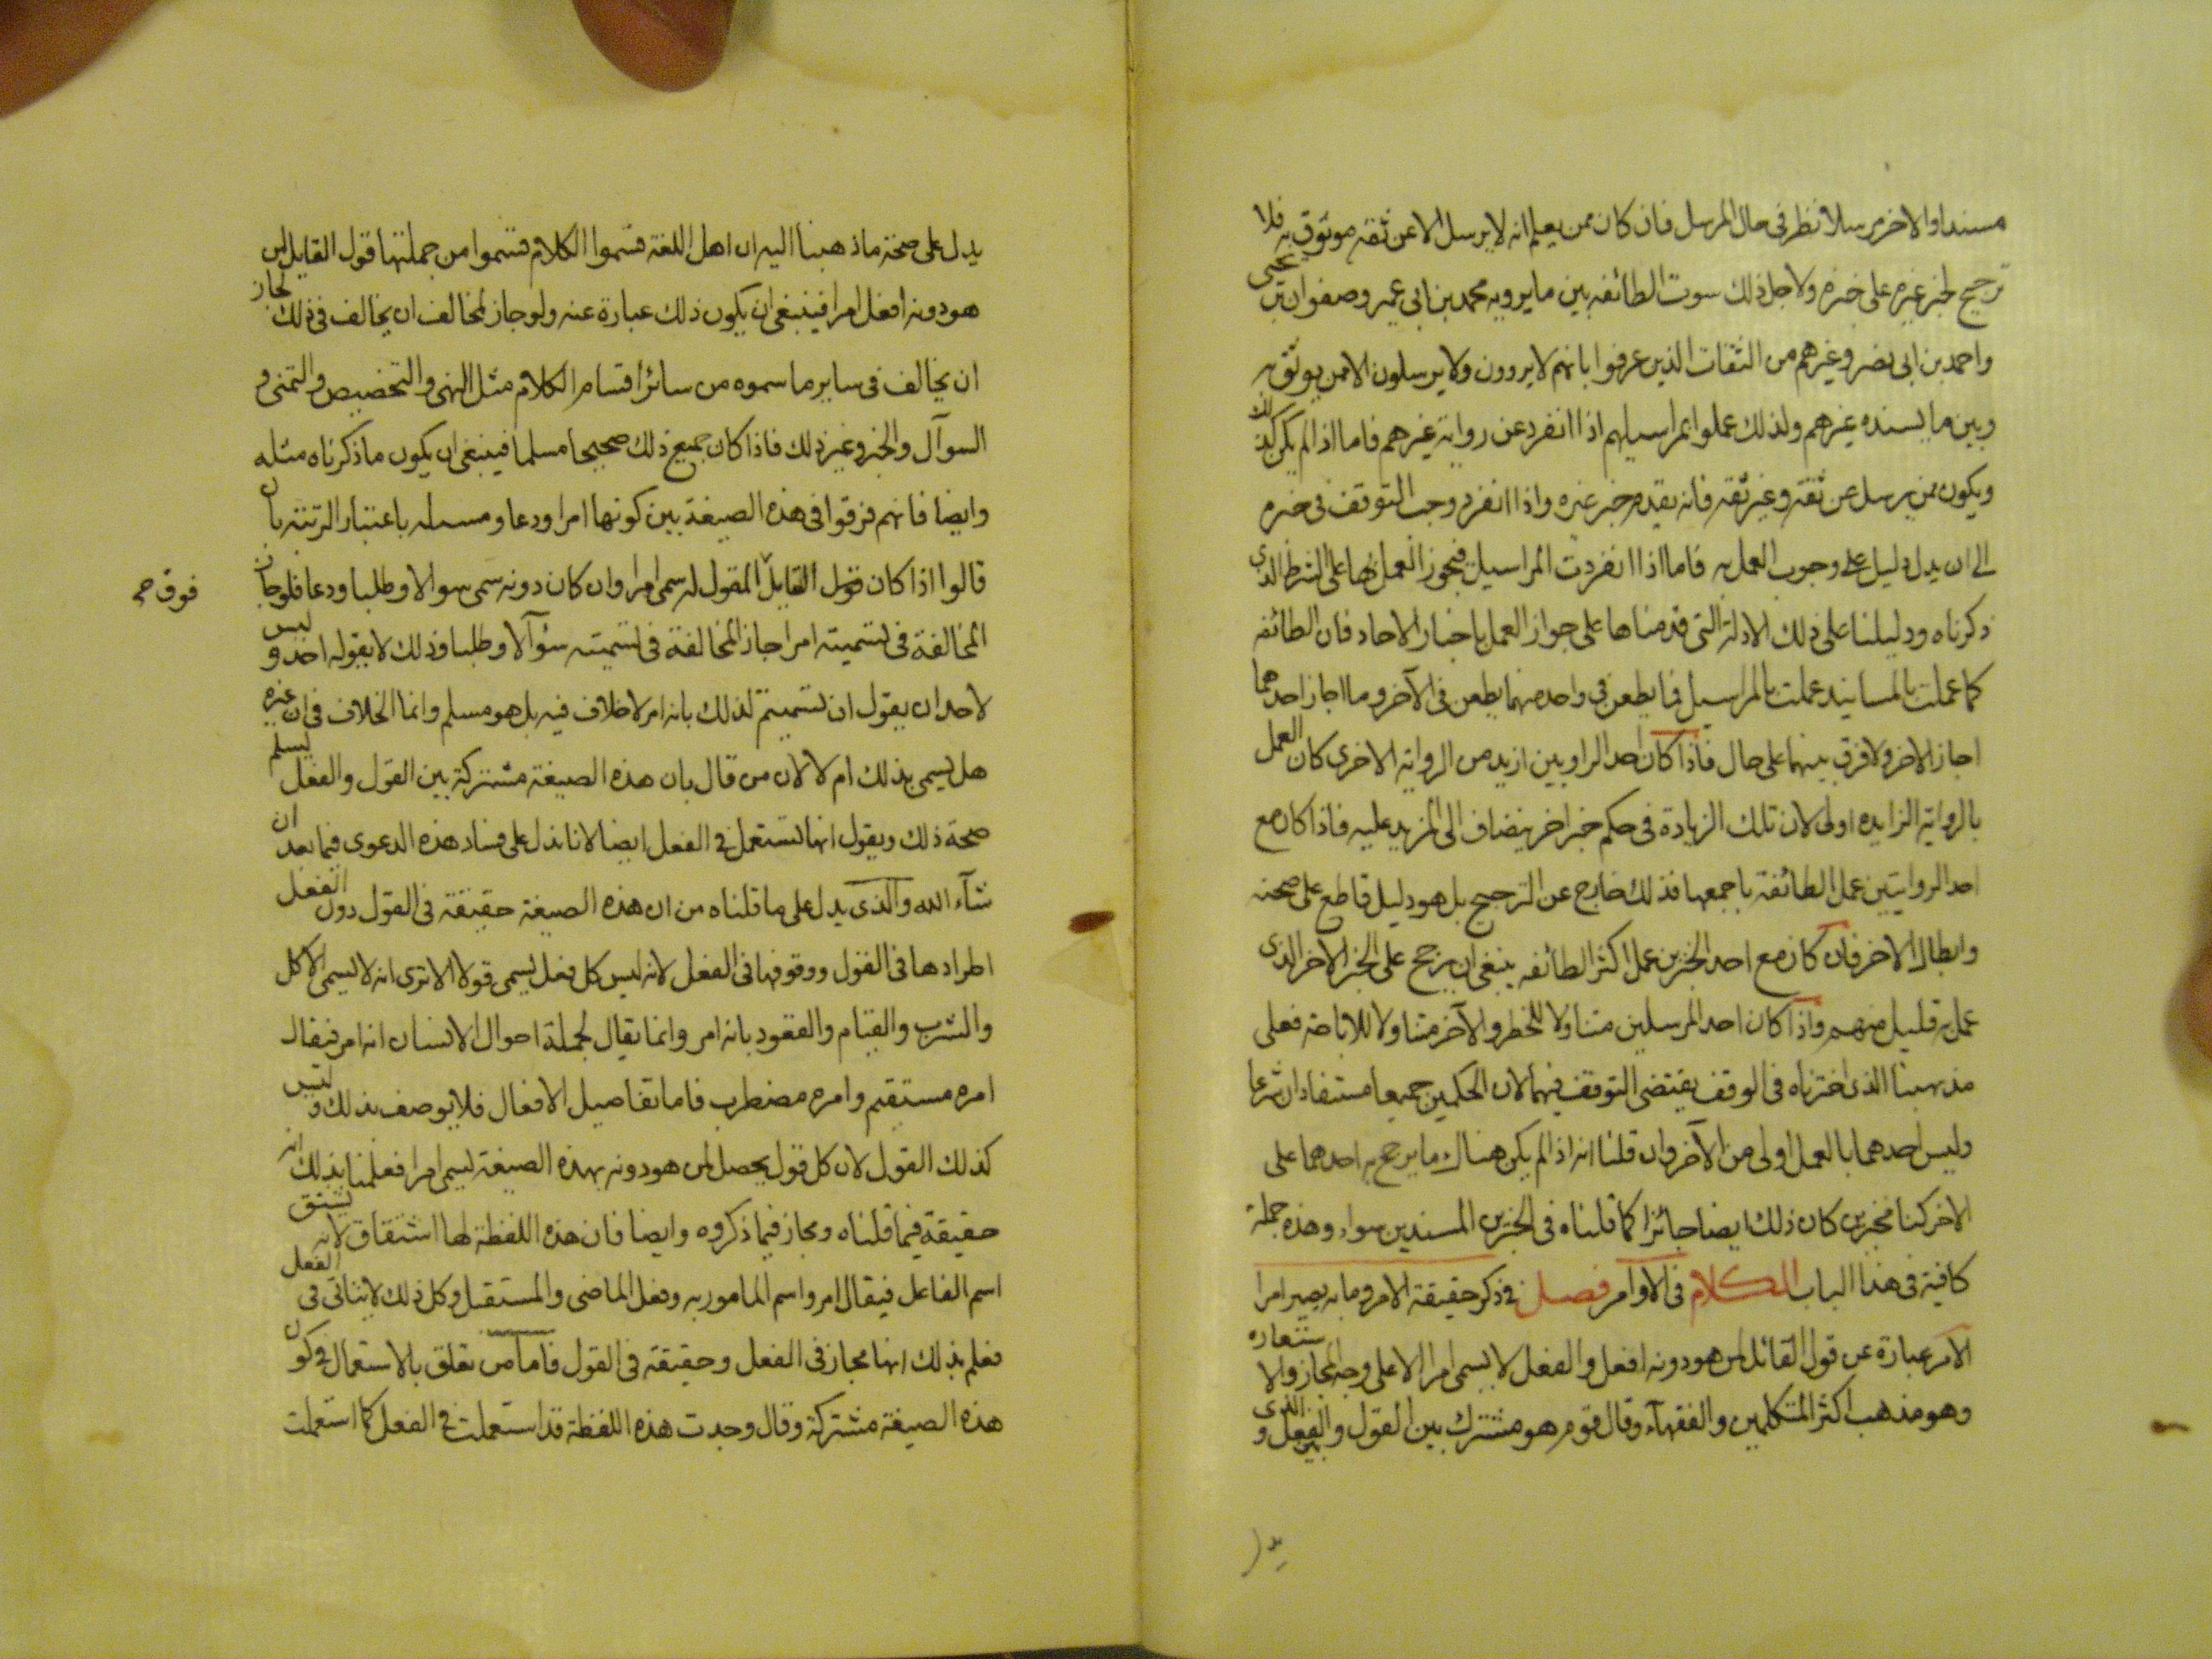 مسندا والاخر مرسلا نظر فى حال المرسل فان كان ممن يعلم انه لا يرسل الا عن ثقه موثوق به فلا
ترجيح لخبر غيره على خبره ولاجل ذلك سوت الطائفه بين ما يرويه محمد بن ابى عمير وصفوان بن يحيى
واحمد بن ابى نصر وغيرهم من الثقات الذين عرفوا بانهم لا يروون ولا يرسلون الا ممن يوثق به
وبين ما يسنده غيرهم ولذلك عملوا بمراسيلهم اذا انفرد عن رواية غيرهم فاما اذا لم يكن كذلك
ويكون ممن يرسل عن ثقة وغير ثقه فانه يقدم خبر غيره واذا انفرد وجب التوقف فى خبره
الى ان يدل دليل على وجوب العمل به فاما اذا انفردت المراسيل فيجوز العمل بها على الشرط الذى
ذكرناه ودليلنا على ذلك الادلة التى قدمناها على جواز العمل باخبار الاحاد فان الطائفه
كما عملت بالمسانيد عملت بالمراسيل فما يطعن فى واحد منهما يطعن فى الآخر وما اجاز احدهما
اجاز الاخر ولا فرق بينهما على حال فاذا كان احد الراويين ازيد من الرواية الاخرى كان العمل
بالرواية الزايده اولى لان تلك الزيادة فى حكم خبر اخر ينضاف الى المزيد عليه فاذا كان مع
احد الروايتين عمل الطائفة باجمعها فذلك خارج عن الترجيح بل هو دليل قاطع على صحته
وابطال الاخر فان كان مع احد الخبرين عمل اكثر الطائفه ينبغى ان يرجح على الخبر الآخر الذى
عمل به قليل منهم واذا كان احد المرسلين متناولا للحظر والآخر متناولا للاباحة فعلى
مذهبنا الذى اخترناه فى الوقف يقتضى التوقف فيهما لان الحكمين جميعا مستفادان شرعا
وليس احدهما بالعمل اولى من الآخر وان قلنا انه اذا لم يكن هناك ما يرجح به احدهما على
الاخر كنا مخيرين كان ذلك ايضا جائزا كما قلناه فى الخبرين المسندين سواء وهذه جملة
كافية فى هذا الباب الكلام فى الاوامر فصل فى ذكر حقيقة الامر وما به يصير امرا
الامر عبارة عن قول القائل لمن هو دونه افعل والفعل لا يسمى امرا الا على وجه المجاز والاستعاره
وهو مذهب اكثر المتكلمين والفقهآء وقال قوم هو مشترك بين القول والفعل والذى
يدل
يدل على صحة ما ذهبنا اليه ان اهل اللغة قسموا الكلام فسموا من جملتها قول القايل لمن
هو دونه افعل امرا فينبغى ان يكون ذلك عبارة عنه ولو جاز لمخالف ان يخالف فى ذلك لجاز
ان يخالف فى ساير ما سموه من سائر اقسام الكلام مثل النهى والتخصيص والتمنى و
السوآل والخبر وغير ذلك فاذا كان جميع ذلك صحيحا مسلما فينبغى ان يكون ما ذكرناه مثله
وايضا فانهم فرقوا فى هذه الصيغة بين كونها امرا ودعا ومسئله باعتبار الرتبة بان
قالوا اذا كان قول القايل المقول له سمى امرا وان كان دونه سمى سوالا وطلبا ودعا فلو جاز
فوق صح
المخالفة فى تسميته امرا جاز المخالفة فى تسميته سؤآلا وطلبا وذلك لا يقوله احد وليس
لاحد ان يقول ان تسميتم لذلك بانه امر لا خلاف فيه بل هو مسلم وانما الخلاف فى ان غيره
هل يسمى بذلك ام لا لان من قال بان هذه الصيغة مشتركة بين القول والفعل يسلم
صحة ذلك ويقول انها تستعمل فى الفعل ايضا لانا ندل على فساد هذه الدعوى فيما بعد ان
شآء الله والذى يدل على ما قلناه من ان هذه الصيغة حقيقة فى القول دون الفعل
اطرادها فى القول ووقوفها فى الفعل لانه ليس كل فعل يسمى قولا الا ترى انه لا يسمى الاكل
والشرب والقيام والقعود بانه امر وانما يقال لجملة احوال الانسان انه امر فيقال
امره مستقيم وامره مضطرب فاما تفاصيل الافعال فلا يوصف بذلك وليس
كذلك القول لان كل قول يحصل لمن هو دونه بهذه الصيغة يسمى امرا فعلمنا بذلك انه
حقيقة فيما قلناه ومجاز فيما ذكروه وايضا فان هذه اللفظة لها اشتقاق لانه يشتق
اسم الفاعل فيقال امر واسم المامور به وفعل الماضى والمستقبل وكل ذلك لا يتاتى فى الفعل
فعلم بذلك انها مجاز فى الفعل وحقيقة فى القول فاما من تعلق بالاستعمال فى كون
هذه الصيغة مشتركة وقال وجدت هذه اللفظة قد استعملت فى الفعل كما استعملت